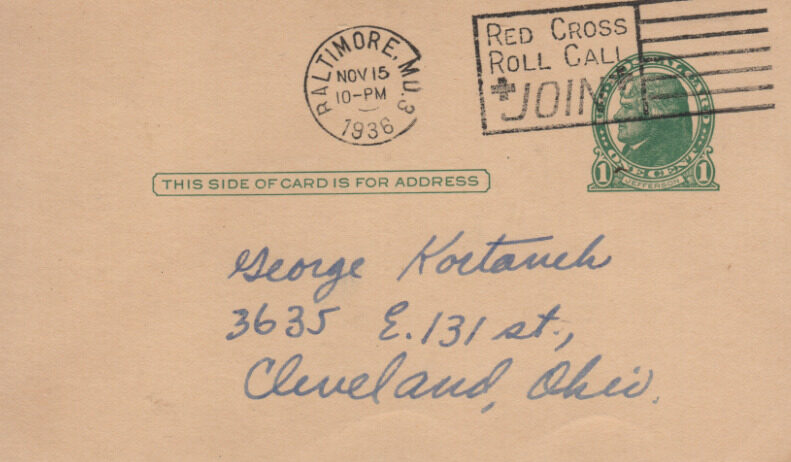 BALTIMORE, MD. 3
NOV 15
10-PM
1936
RED CROSS
ROLL CALL
JOIN
THIS SIDE OF CARD IS FOR ADDRESS
ONE CENT
1 JEFFERSON 1
George
3635 E. 131 st.,
Cleveland, Ohio.